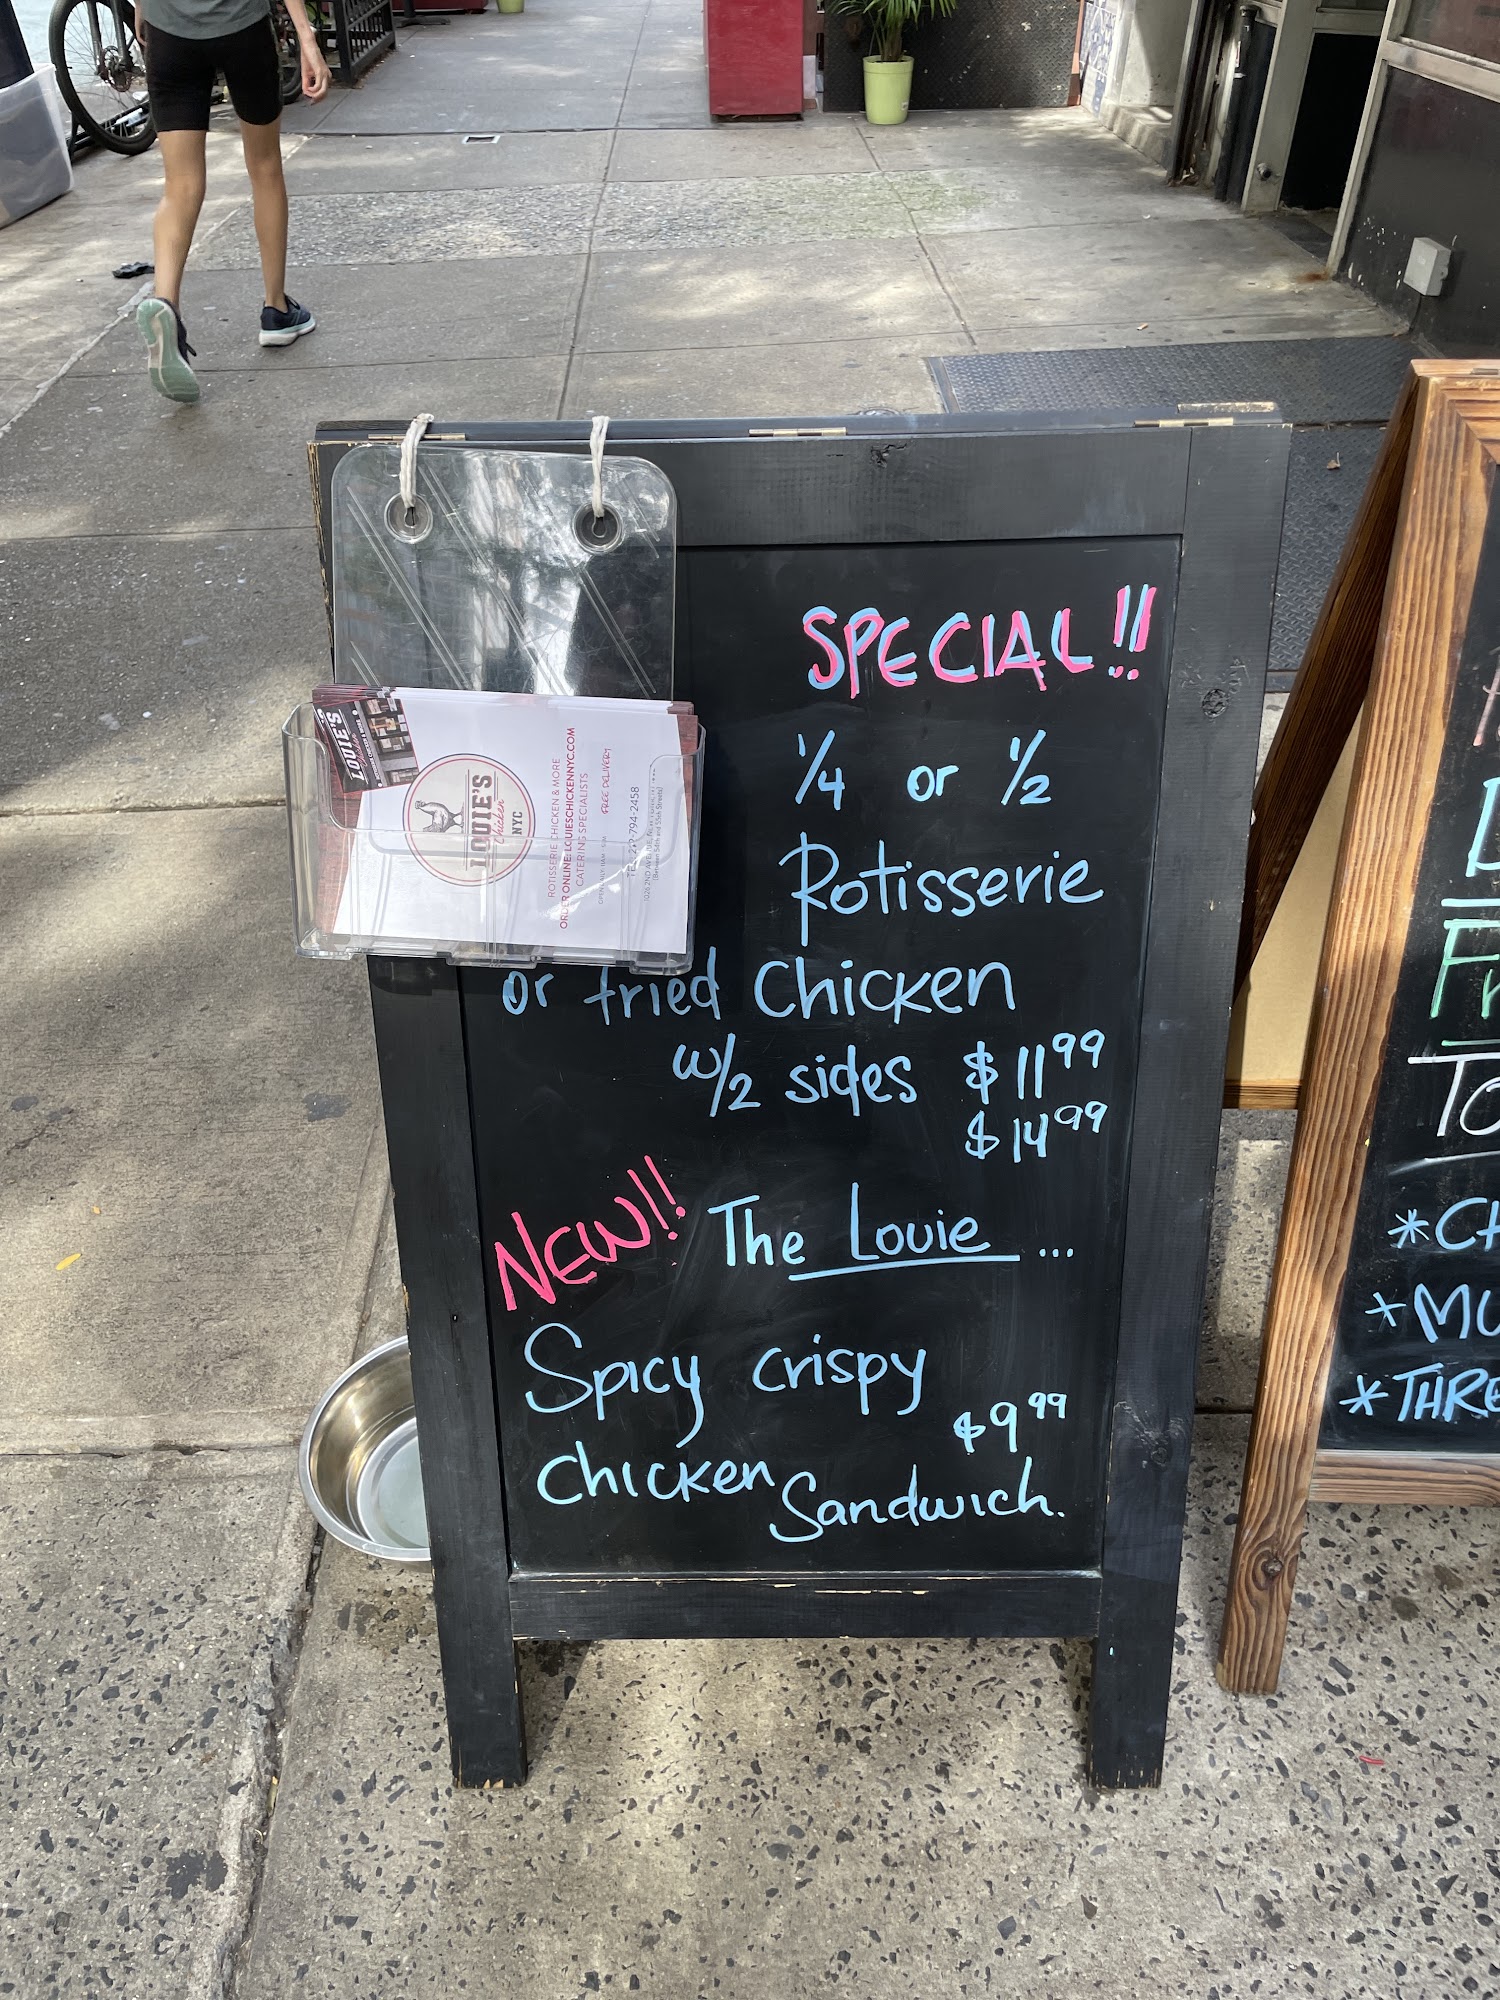 SPECIAL!!
1/4 or 1/2
Rotisserie
or fried Chicken
w/2 sides $11.99
$14.99
NEW!! The Louie ...
Spicy Crispy
$9.99
Chicken Sandwich.
LOUIE'S
LOUIE'S
Chicken
NYC
ROTISSERIE CHICKEN & MORE
ORDER ONLINE: LOUIESCHICKENNYC.COM
CATERING SPECIALISTS
FREE DELIVERY
TEL: 212-794-2458
Fr
TO
*CH
*MU
*THRE